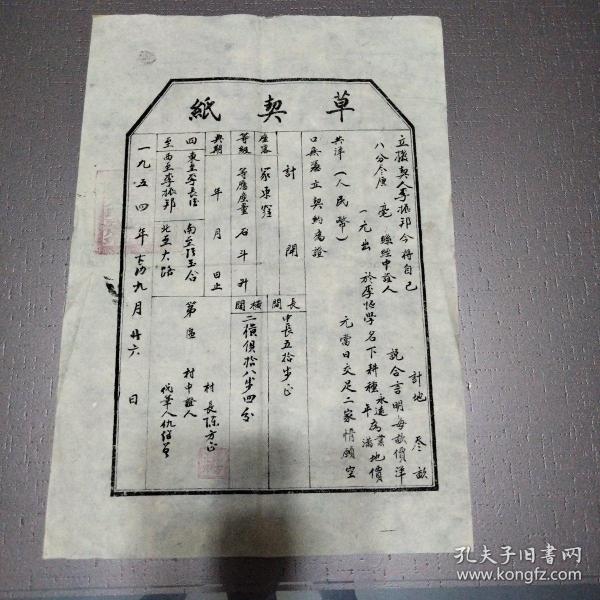 草契紙
立 契人李振邦今将自己
計地 叁畝
八分 毫 中證人
説合言明每畝價洋
一元出 於李 學名下耕種永遠為業 年滿 地價
共洋(人民幣) 元當日交足二家情願空
口無憑立契約為證
計開
座落 家東
等級 等應產量 石斗升
典期 年 月 日止
四至
東至李長
南至
西至李振邦
北至大路
長闊
中長五拾步正
橫闊
二橫俱拾八步四分
第 區
村長陳方正
村中證人
代筆人仇
一九五四年 九月廿六日
孔夫子旧书网
www.kongfz.com